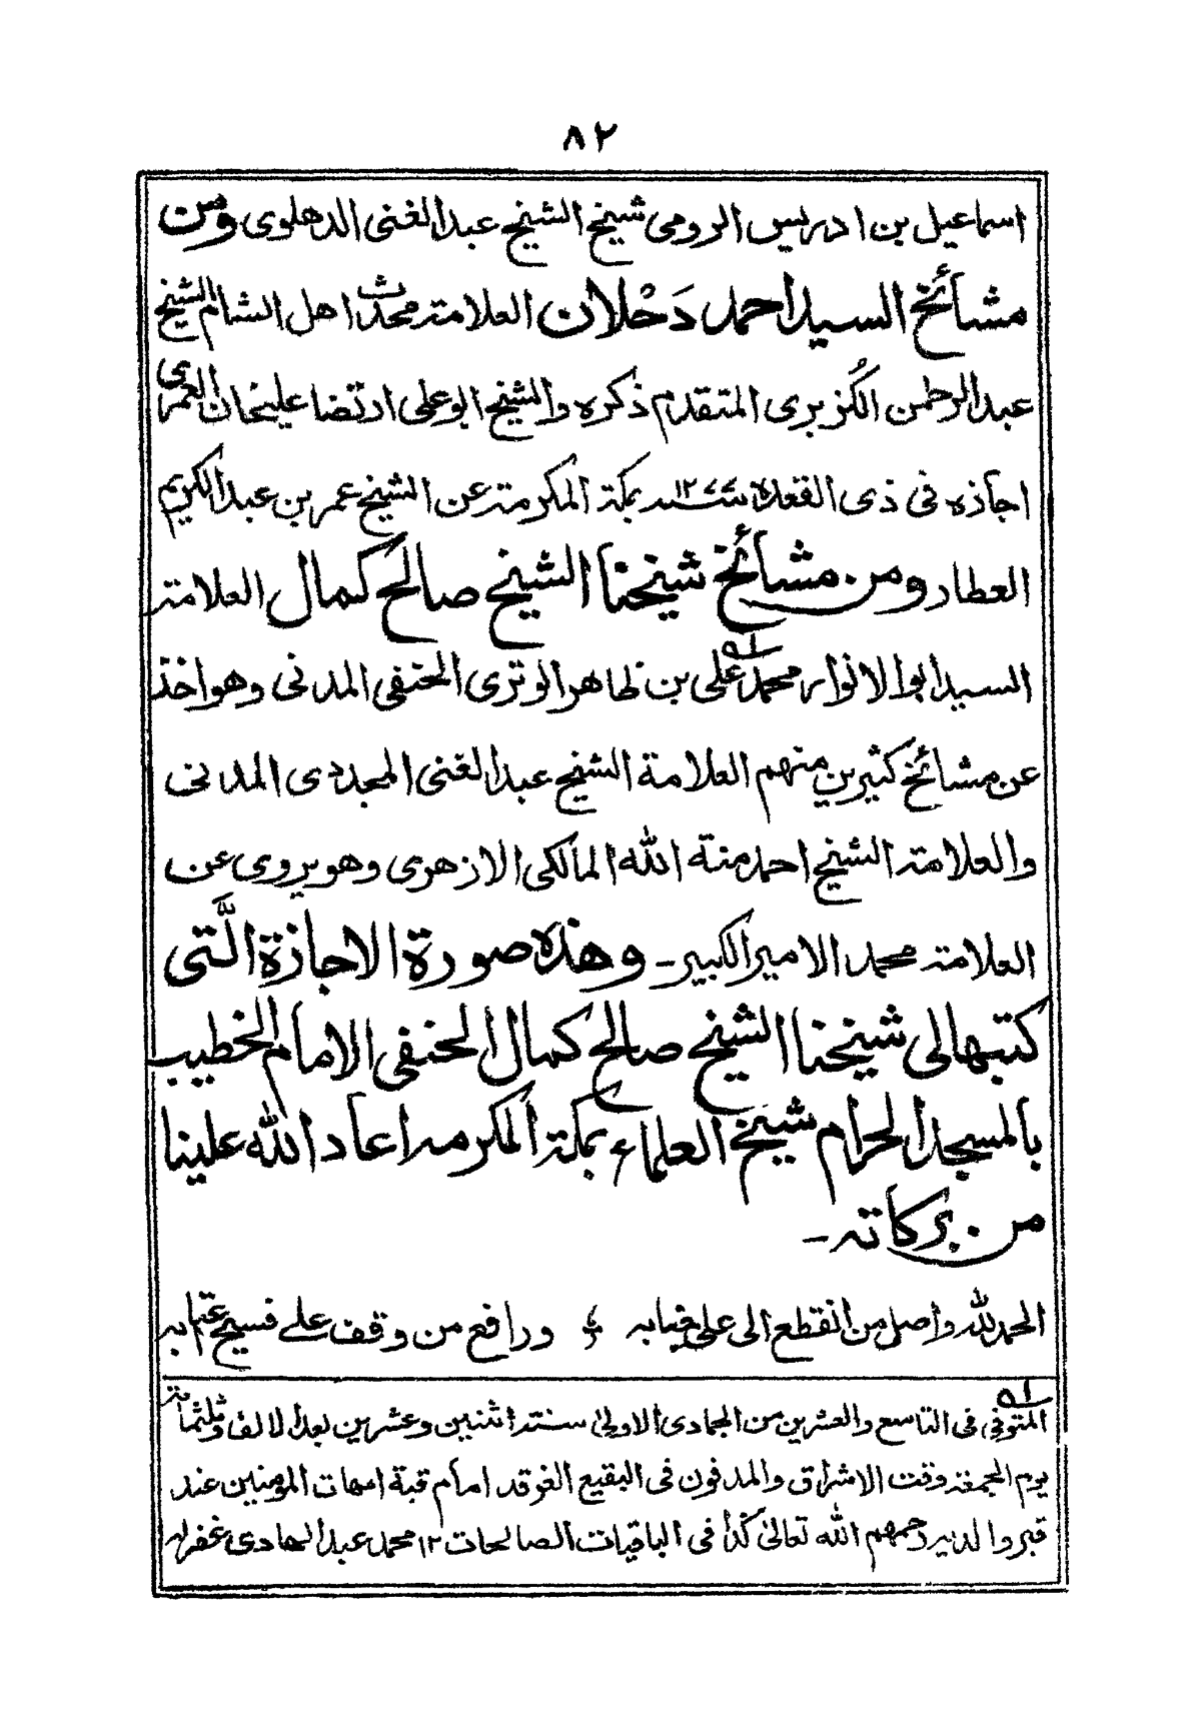 ٨٢
اسماعيل بن ادريس الرومى شيخ الشيخ عبد الغنى الدهلوى ومن
مشائخ السيد احمد دَحْلان العلامة محدث اهل الشام الشيخ
عبد الرحمن الكُزبرى المتقدم ذكره والشيخ ابو على ارتضا عليخان العمرى
اجازه فى ذى القعدة سنة ١٢ بمكة المكرمة عن الشيخ عمر بن عبد الكريم
العطار ومن مشائخ شيخنا الشيخ صالح كمال العلامة
السيد ابو الانوار محمد على بن ظاهر الوترى الحنفى المدنى وهو اخذ
عن مشائخ كثيرين منهم العلامة الشيخ عبد الغنى المجددى المدنى
والعلامة الشيخ احمد منة الله المالكى الازهرى وهو يروى عن
العلامة محمد الامير الكبير۔ وهذه صورة الاجازة الَّتى
كتبها لى شيخنا الشيخ صالح كمال الحنفى الامام الخطيب
بالمسجد الحرام شيخ العلماء بمكة المكرمة اعاد الله علينا
من بركاته۔
الحمد لله واصل من انقطع الى على جنابه ورافع من وقف على فسيح عتبابه
المتوفى فى التاسع والعشرين من الجمادى الاولى سنة اثنين وعشرين بعد الالف وثلثمائة
يوم الجمعة وقت الاشراق والمدفون فى البقيع الغرقد امام قبة امهات المومنين عند
قبر والديه رحمهم الله تعالى كذا فى الباقيات الصالحات ١٢ محمد عبد الهادى غفرله